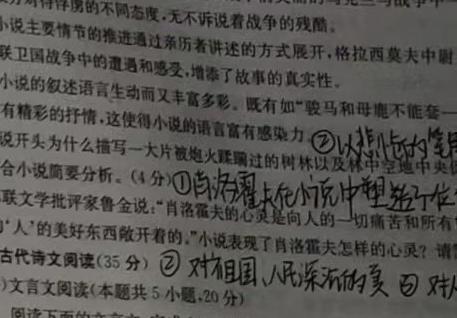 方对待俘虏的不同态度,无不诉说着战争的残酷。
小说主要情节的推进通过亲历者讲述的方式展开,格拉西莫夫中尉
联卫国战争中的遭遇和感受,增添了故事的真实性。
小说的叙述语言生动而又丰富多彩。既有如“骏马和母鹿不能套一
有精彩的抒情,这使得小说的语言富有感染力 ②以悲怆的笔
说开头为什么描写一大片被炮火蹂躏过的树林以及林中空地中央
合小说简要分析。(4分)①肖洛霍夫在小说中塑造了
联文学批评家鲁金说:“肖洛霍夫的心灵是向人的一切痛苦和所有
‘人’的美好东西敞开着的。”小说表现了肖洛霍夫怎样的心灵?请
古代诗文阅读(35分) ② 对祖国、人民深沉的
)文言文阅读(本题共5小题,20分)
阅读下面的文言文